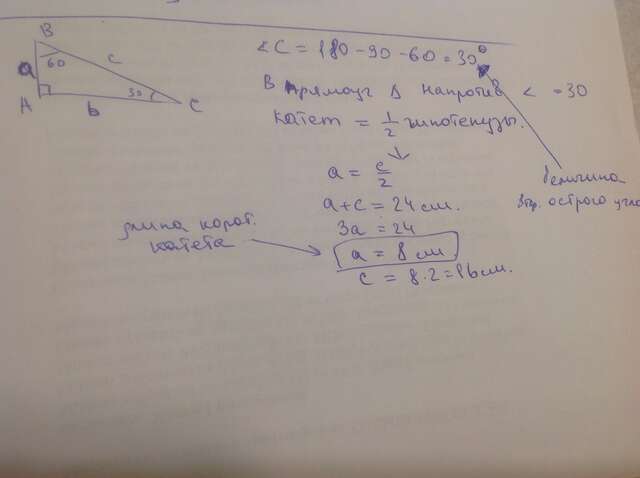 B
60
c
a
A
b
30
C
<C = 180 - 90 - 60 = 30°
В прямоуг Δ напротив < = 30
катет = 1/2 гипотенузы.
a = c/2
a + c = 24 см.
3a = 24
a = 8 см
c = 8 · 2 = 16 см.
длина корот.
катета
величина
втр. острого угла